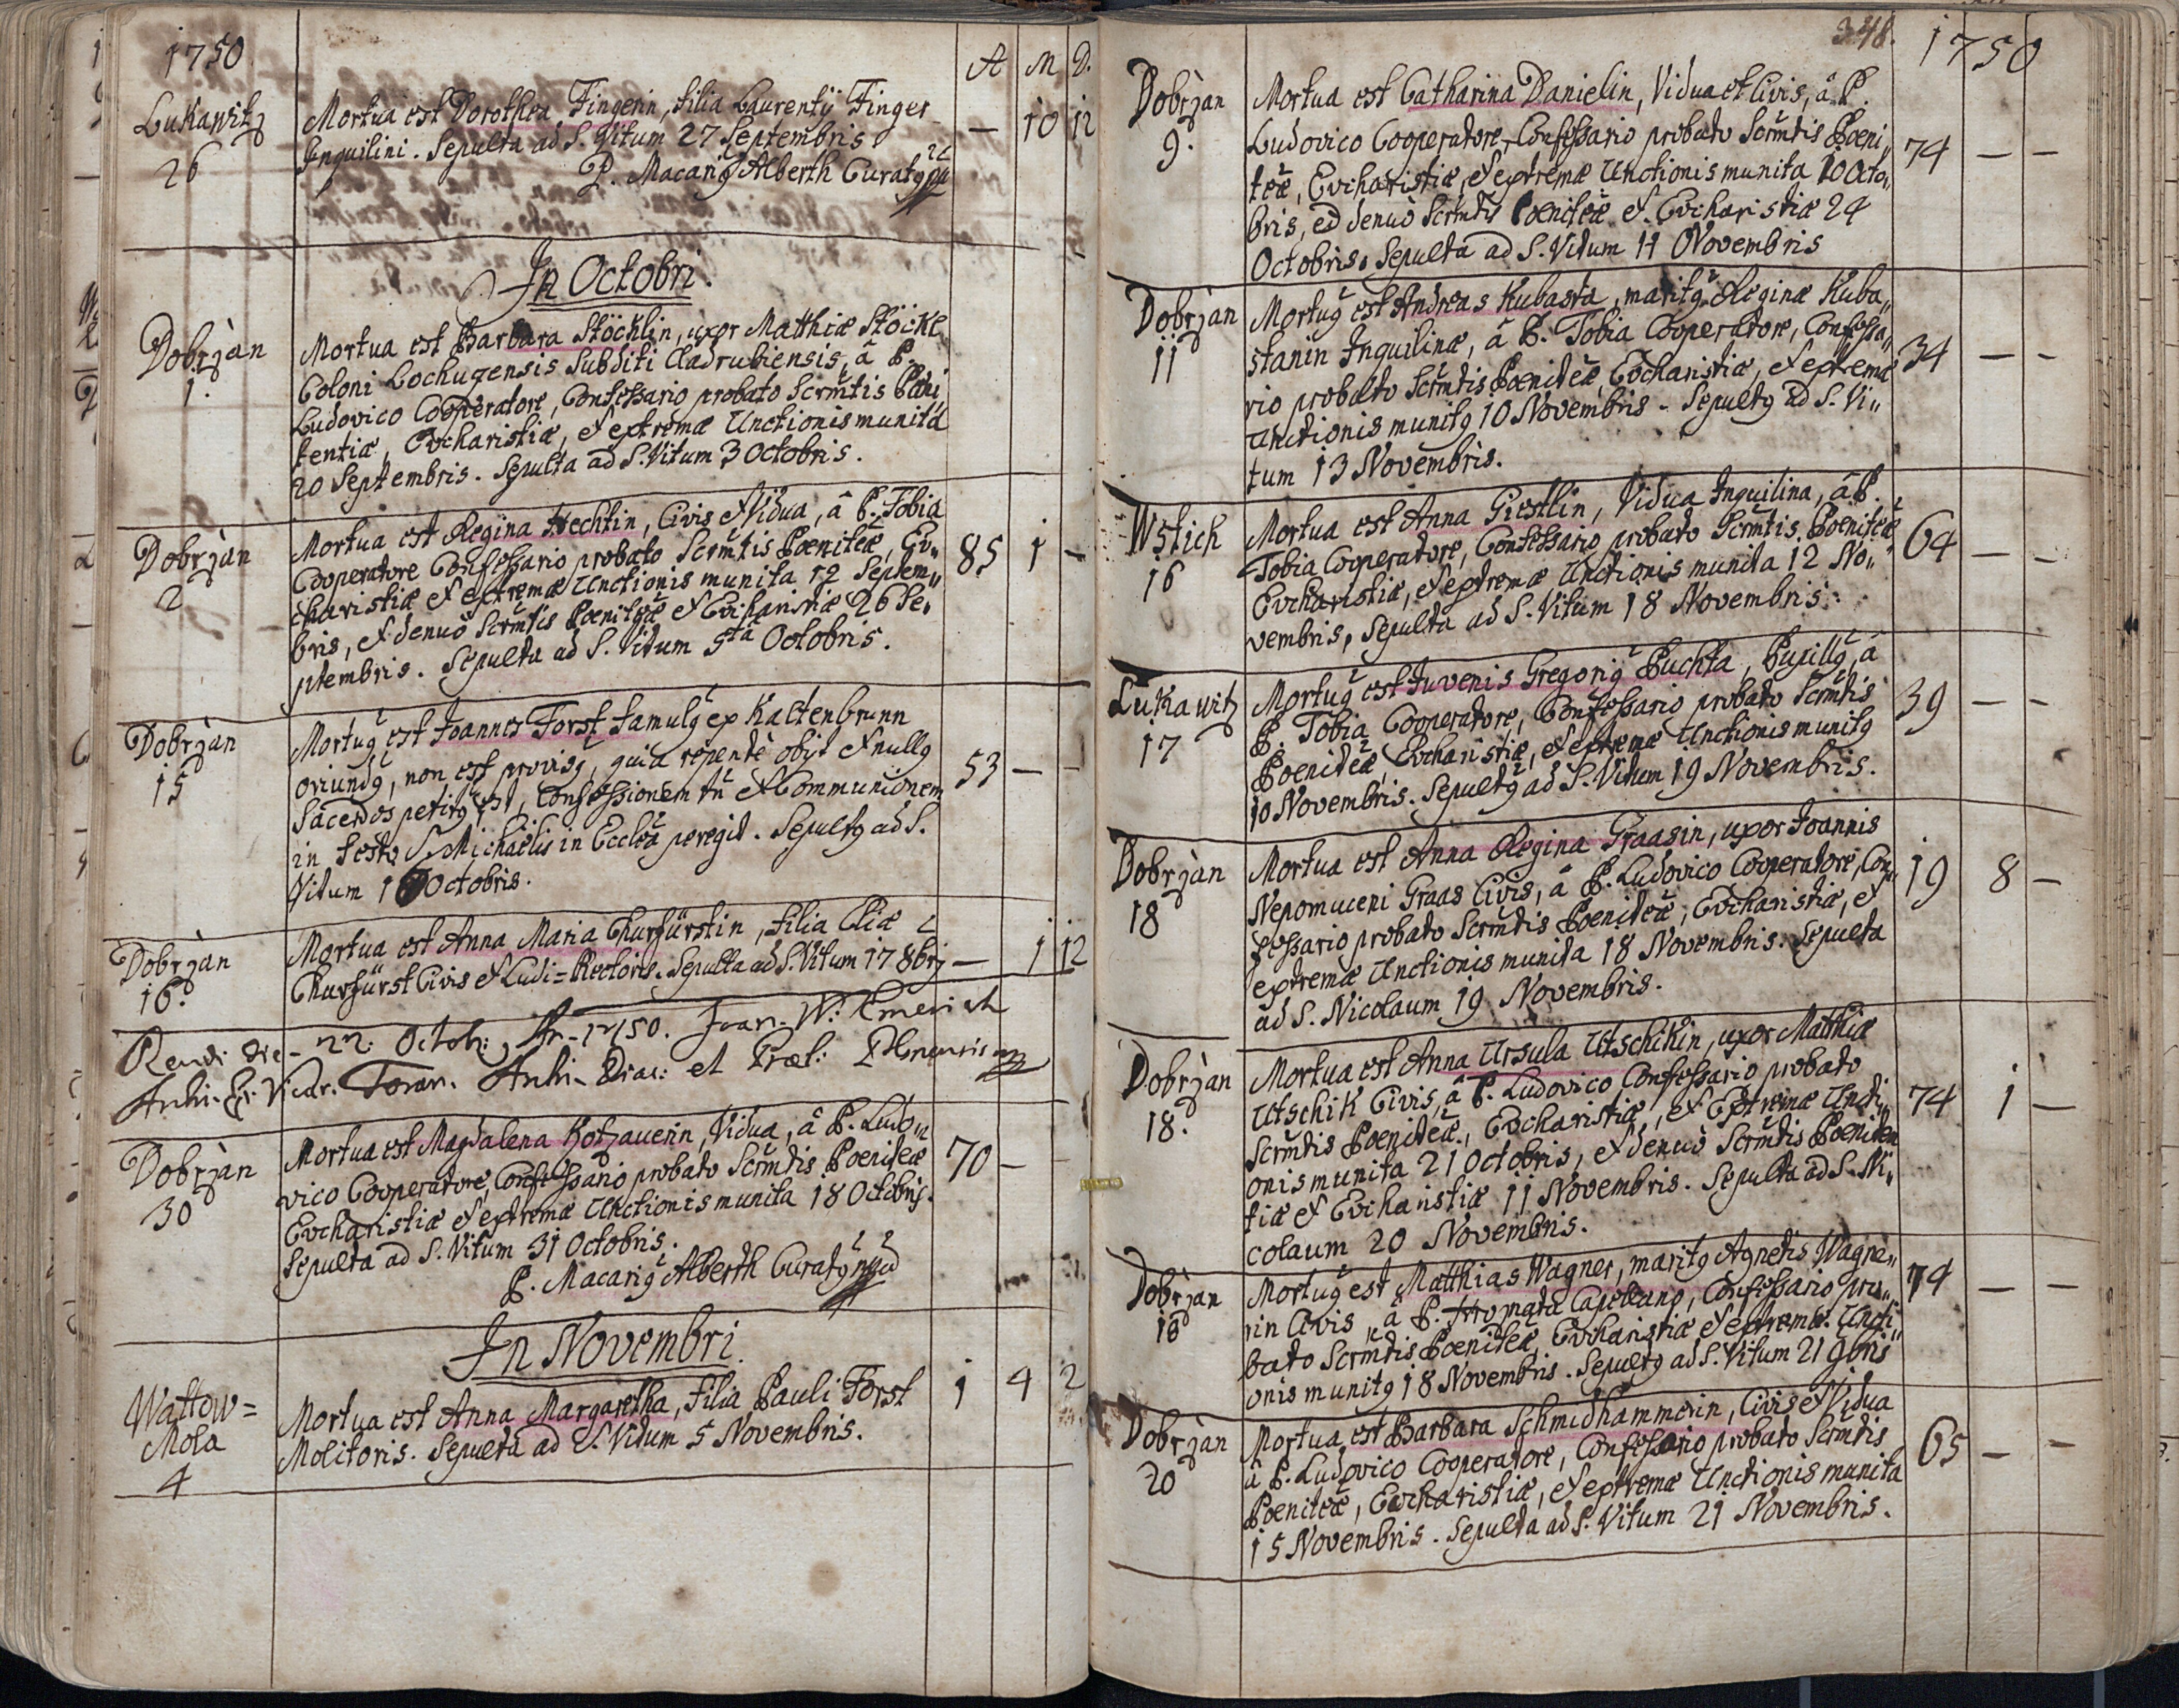 1750
A M D.
Lukawitz
26
Mortua est Dorothea Fingerin, filia Laurentij Finger
Inquilini. Sepulta ad S. Vitum 27 Septembris
— 10 12
P. Macari9 Alberth Curat9
In Octobri.
Dobrzan
1.
Mortua est Barbara Stöcklin, uxor Matthiæ Stöckl
Coloni Lochuzensis Subditi Cladrubiensis, â P.
Ludovico Cooperatore, Confessario probato Scrmtis Pœni„
tentiæ, Evcharistiæ, et extremæ Unctionis munita
20 Septembris. Sepulta ad S. Vitum 3 Octobris.
Dobrzàn
2
Mortua est Regina Hechtin, Civis et Vidua, â P. Tobia
Cooperatore Confessario probato Scrmtis Pœniteæ, Ev„
charistiæ et extremæ Unctionis munita 12 Septem„
bris, et denuò Scrmtis Pœniteæ et Evcharistiæ 26 Se„
ptembris. Sepulta ad S. Vitum 5ta Octobris.
85 1 —
Dobrzàn
15
Mortu9 est Joannes Forst famul9 ex Kaltenbrunn
oriund9, non est provis9, quia repentè obijt et null9
Sacerdos petit9 est, Confessionem tñ et Communionem
in festo S. Michaëlis in Ecclêa peregit. Sepult9 ad S.
Vitum 16 Octobris.
53 — —
Dobrzàn
16.
Mortua est Anna Maria Churfürstin, filia Eliæ
Churfürst Civis et Ludi-Rectoris. Sepulta ad S. Vitum 17 8bris
— 1 12
die 22. Octob: An. 1750. Joan. W. Emerich
Vicar. Foran. Archi-Diac: et Præl: Plsnensis
Dobrzàn
30
Mortua est Magdalena Kotzauerin, Vidua, â P. Ludo„
vico Cooperatore, Confessario probato Scrmtis Pœniteæ
Evcharistiæ et extremæ Unctionis munita 18 Octobris.
Sepulta ad S. Vitum 31 Octobris.
70 —
P. Macari9 Alberth Curat9 mpd
In Novembri.
Wattow=
Mola
4
Mortua est Anna Margaretha, filia Pauli Forst
Molitoris. Sepulta ad S. Vitum 5 Novembris.
1 4 2
348. 1750
Dobrzàn
9.
Mortua est Catharina Danielin, Vidua et Civis, â P.
Ludovico Cooperatore, Confessario probato Scrmtis Pœni„
teæ, Evcharistiæ, et extremæ Unctionis munita 10 Octo„
bris, ed denuò Scrmtis Pœniteæ et Evcharistiæ 24
Octobris. Sepulta ad S. Vitum 11 Novembris
74 — —
Dobrzàn
11
Mortu9 est Andreas Kubasta, marit9 Reginæ Kuba„
stanin Inquilinæ, â P. Tobia Cooperatore, Confessa„
rio probato Scrmtis Pœniteæ, Evcharistiæ, et extremæ
Unctionis munit9 10 Novembris. Sepult9 ad S. Vi„
tum 13 Novembris.
34 — —
Wstich
16
Mortua est Anna Giestlin, Vidua Inquilina, â P.
Tobia Cooperatore, Confessario probato Scrmtis Pœniteæ
Evcharistiæ, et extremæ Unctionis munita 12 No„
vembris, Sepulta ad S. Vitum 18 Novembris.
64 — —
Lukawitz
17
Mortu9 est Juvenis Gregori9 Puchta, Pupill9, â
P. Tobia Cooperatore, Confessario probato Scrmtis
Pœniteæ, Evcharistiæ, et extremæ Unctionis munit9
10 Novembris. Sepult9 ad S. Vitum 19 Novembris.
39 — —
Dobrzàn
18
Mortua est Anna Regina Graasin, uxor Joannis
Nepomuceni Graas Civis, â P. Ludovico Cooperatore, Con„
fessario probato Scrmtis Pœniteæ, Evcharistiæ, et
extremæ Unctionis munita 18 Novembris. Sepulta
ad S. Nicolaum 19 Novembris.
19 8 —
Dobrzàn
18.
Mortua est Anna Ursula Utschikin, uxor Matthiæ
Utschik Civis, â P. Ludovico Confessario probato
Scrmtis Pœniteæ, Evcharistiæ, et Extremæ Uncti„
onis munita 21 Octobris, et denuò Scrmtis Pœniten
tiæ et Evcharistiæ 11 Novembris. Sepulta ad S. Ni„
colaum 20 Novembris.
74 1 —
Dobrzàn
18
Mortu9 est Matthias Wagner, marit9 Agnetis Wagne„
rin Civis, â P. Capellano, Confessario pro„
bato Scrmtis Pœniteæ, Evcharistiæ et extremæ Uncti„
onis munit9 18 Novembris. Sepult9 ad S. Vitum 21 9bris
74 — —
Dobrzàn
20
Mortua est Barbara Schmidhammerin, Civis et Vidua
â P. Ludovico Cooperatore, Confessario probato Scrmtis
Pœniteæ, Evcharistiæ, et extremæ Unctionis munita
15 Novembris. Sepulta ad S. Vitum 21 Novembris.
65 — —